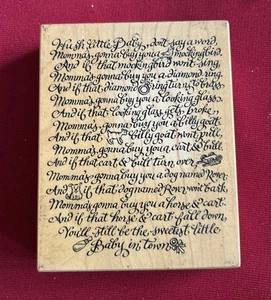 Hush little Baby, don't say a word,
Momma's gonna buy you a mockingbird.
And if that mockingbird won't sing,
Momma's gonna buy you a diamond ring.
And if that diamond ring turns brass,
Momma's gonna buy you a looking glass.
And if that looking glass gets broke,
Momma's gonna buy you a billy goat.
And if that billy goat won't pull,
Momma's gonna buy you a cart & bull.
And if that cart & bull turn over,
Momma's gonna buy you a dog named Rover.
And if that dog named Rover won't bark,
Momma's gonna buy you a horse & cart.
And if that horse & cart fall down,
You'll still be the sweetest little
Baby in town